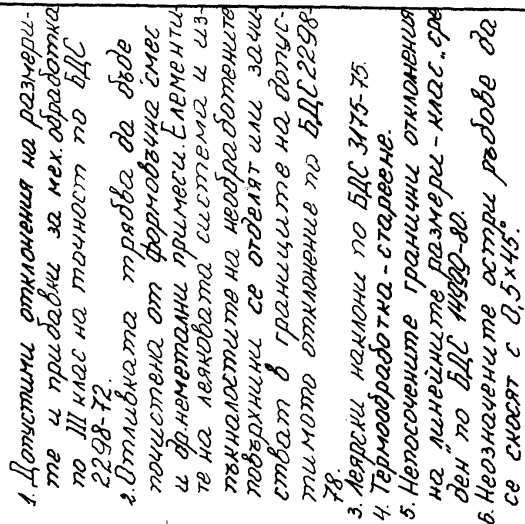 1. Допустими отклонения на размери-
те и прибавки за мех. обработка
по III клас на точност по БДС
2298-72.
2. Отливката трябва да бъде
почистена от формовъчна смес
и др. неметални примеси. Елементи-
те на леяковата система и из-
пъкналостите на необработените
повърхнини се отделят или зачи-
стват в границите на допус-
тимото отклонение по БДС 2298-
78.
3. Леярски наклони по БДС 3175-75.
4. Термообработка - стареене.
5. Непосочените гранични отклонения
на "линейните размери - клас "сре
ден" по БДС 14990-80.
6. Неозначените остри ръбове да
се скосят с 0,5×45°.